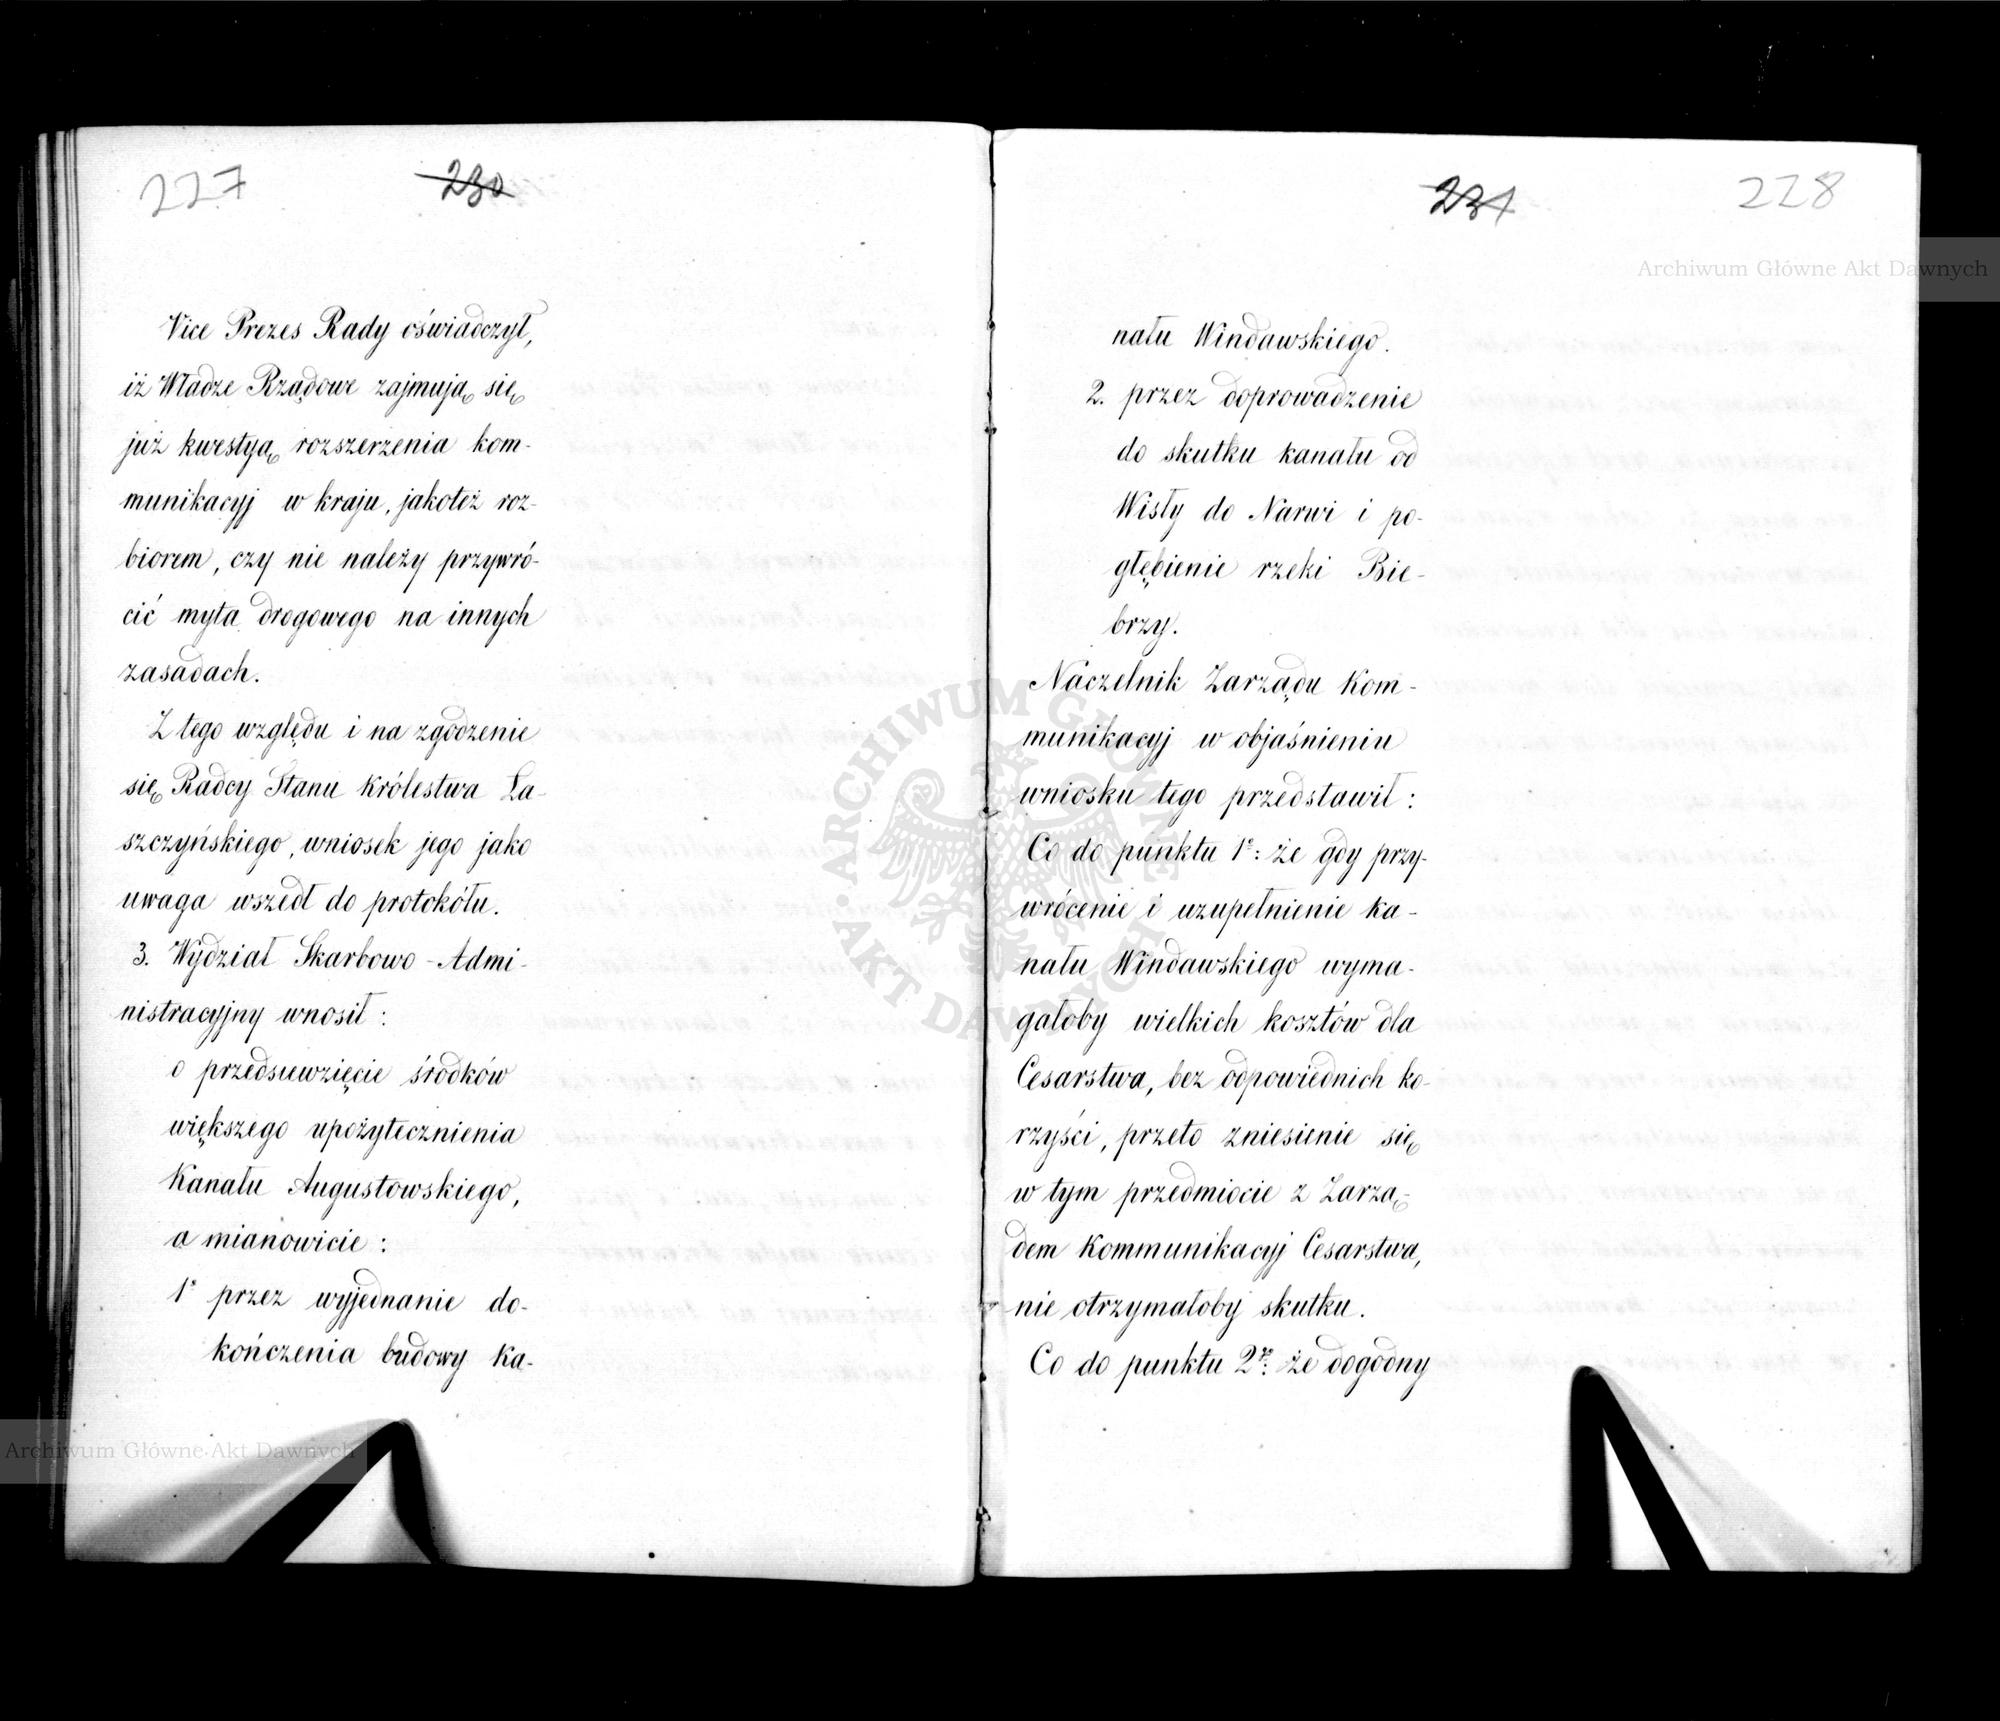 227 230
Vice Prezes Rady oświadczył,
iż Władze Rządowe zajmują się
już kwestyą rozszerzenia kom-
munikacyj w kraju, jakoteż roz-
biorem, czy nie należy przywró-
cić myta drogowego na innych
zasadach.
Z tego względu i na zgodzenie
się Radcy Stanu Królestwa La-
szczyńskiego, wniosek jego jako
uwaga wszedł do protokółu.
3. Wydział Skarbowo-Admi-
nistracyjny wnosił:
o przedsiewzięcie środków
większego upożytecznienia
Kanału Augustowskiego,
a mianowicie:
1º przez wyjednanie do-
kończenia budowy Ka-
231 228
nału Windawskiego.
2. przez doprowadzenie
do skutku kanału od
Wisły do Narwi i po-
głębienie rzeki Bie-
brzy.
Naczelnik Zarządu Kom-
munikacyj w objaśnieniu
wniosku tego przedstawił:
Co do punktu 1º: że gdy przy-
wrócenie i uzupełnienie ka-
nału Windawskiego wyma-
gałoby wielkich kosztów dla
Cesarstwa, bez odpowiednich ko-
rzyści, przeto zniesienie się
w tym przedmiocie z Zarzą-
dem Kommunikacyj Cesarstwa,
nie otrzymałoby skutku.
Co do punktu 2go: że dogodny
Archiwum Główne Akt Dawnych
ARCHIWUM GŁÓWNE AKT DAWNYCH
Archiwum Główne Akt Dawnych